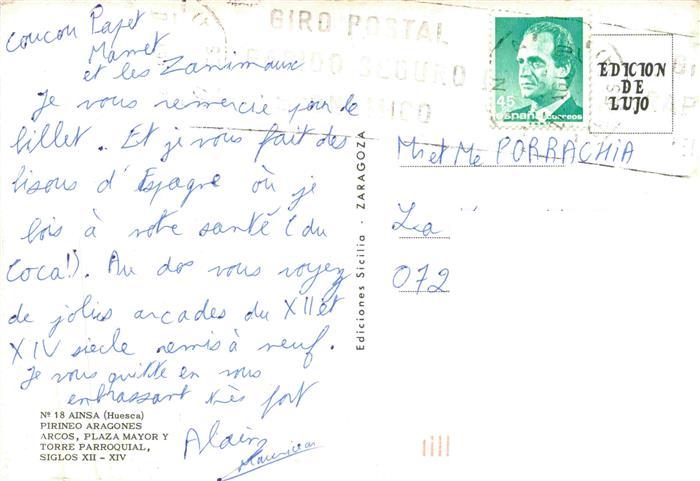 Coucou Papet
Mamet
et les Zanimaux
Je vous remercie pour le
billet.. Et je vous fait des
bisous d'Espagne où je
bois à votre santé (du
Coca!). Au dos vous voyez
de jolies arcades du XII et
XIV siecle remis à neuf.
Je vous quitte en vous
embrassant très fort
Alain
Nº 18 AINSA (Huesca)
PIRINEO ARAGONES
ARCOS, PLAZA MAYOR Y
TORRE PARROQUIAL,
SIGLOS XII - XIV
Ediciones Sicilia - ZARAGOZA
GIRO POSTAL
SEGURO
45
españa correos
EDICION
DE
LUJO
Mr et Me PORRACHIA
La
072